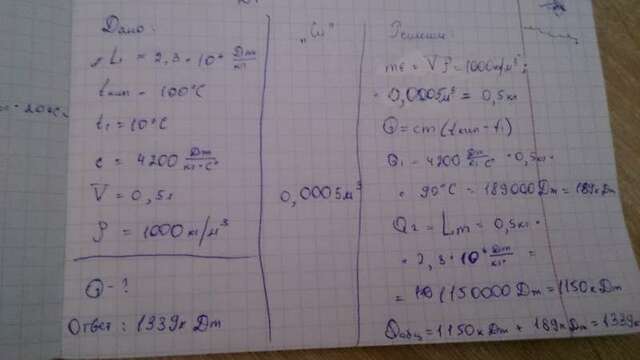 Дано:
L = 2,3 • 10⁶ Дж/кг
tкип = 100°C
t₁ = 10°C
c = 4200 Дж/кг•°C
V = 0,5л
ρ = 1000 кг/м³
Q - ?
Ответ: 1339кДж
"СИ"
0,0005м³
Решение:
m = Vρ = 1000кг/м³ •
• 0,0005м³ = 0,5кг
Q = cm(tкип - t₁)
Q₁ = 4200 Дж/кг•°C • 0,5кг •
• 90°C = 189000Дж = 189кДж
Q₂ = L • m = 0,5кг •
• 2,3 • 10⁶ Дж/кг =
= 1150000 Дж = 1150кДж
Qобщ = 1150кДж + 189кДж = 1339к